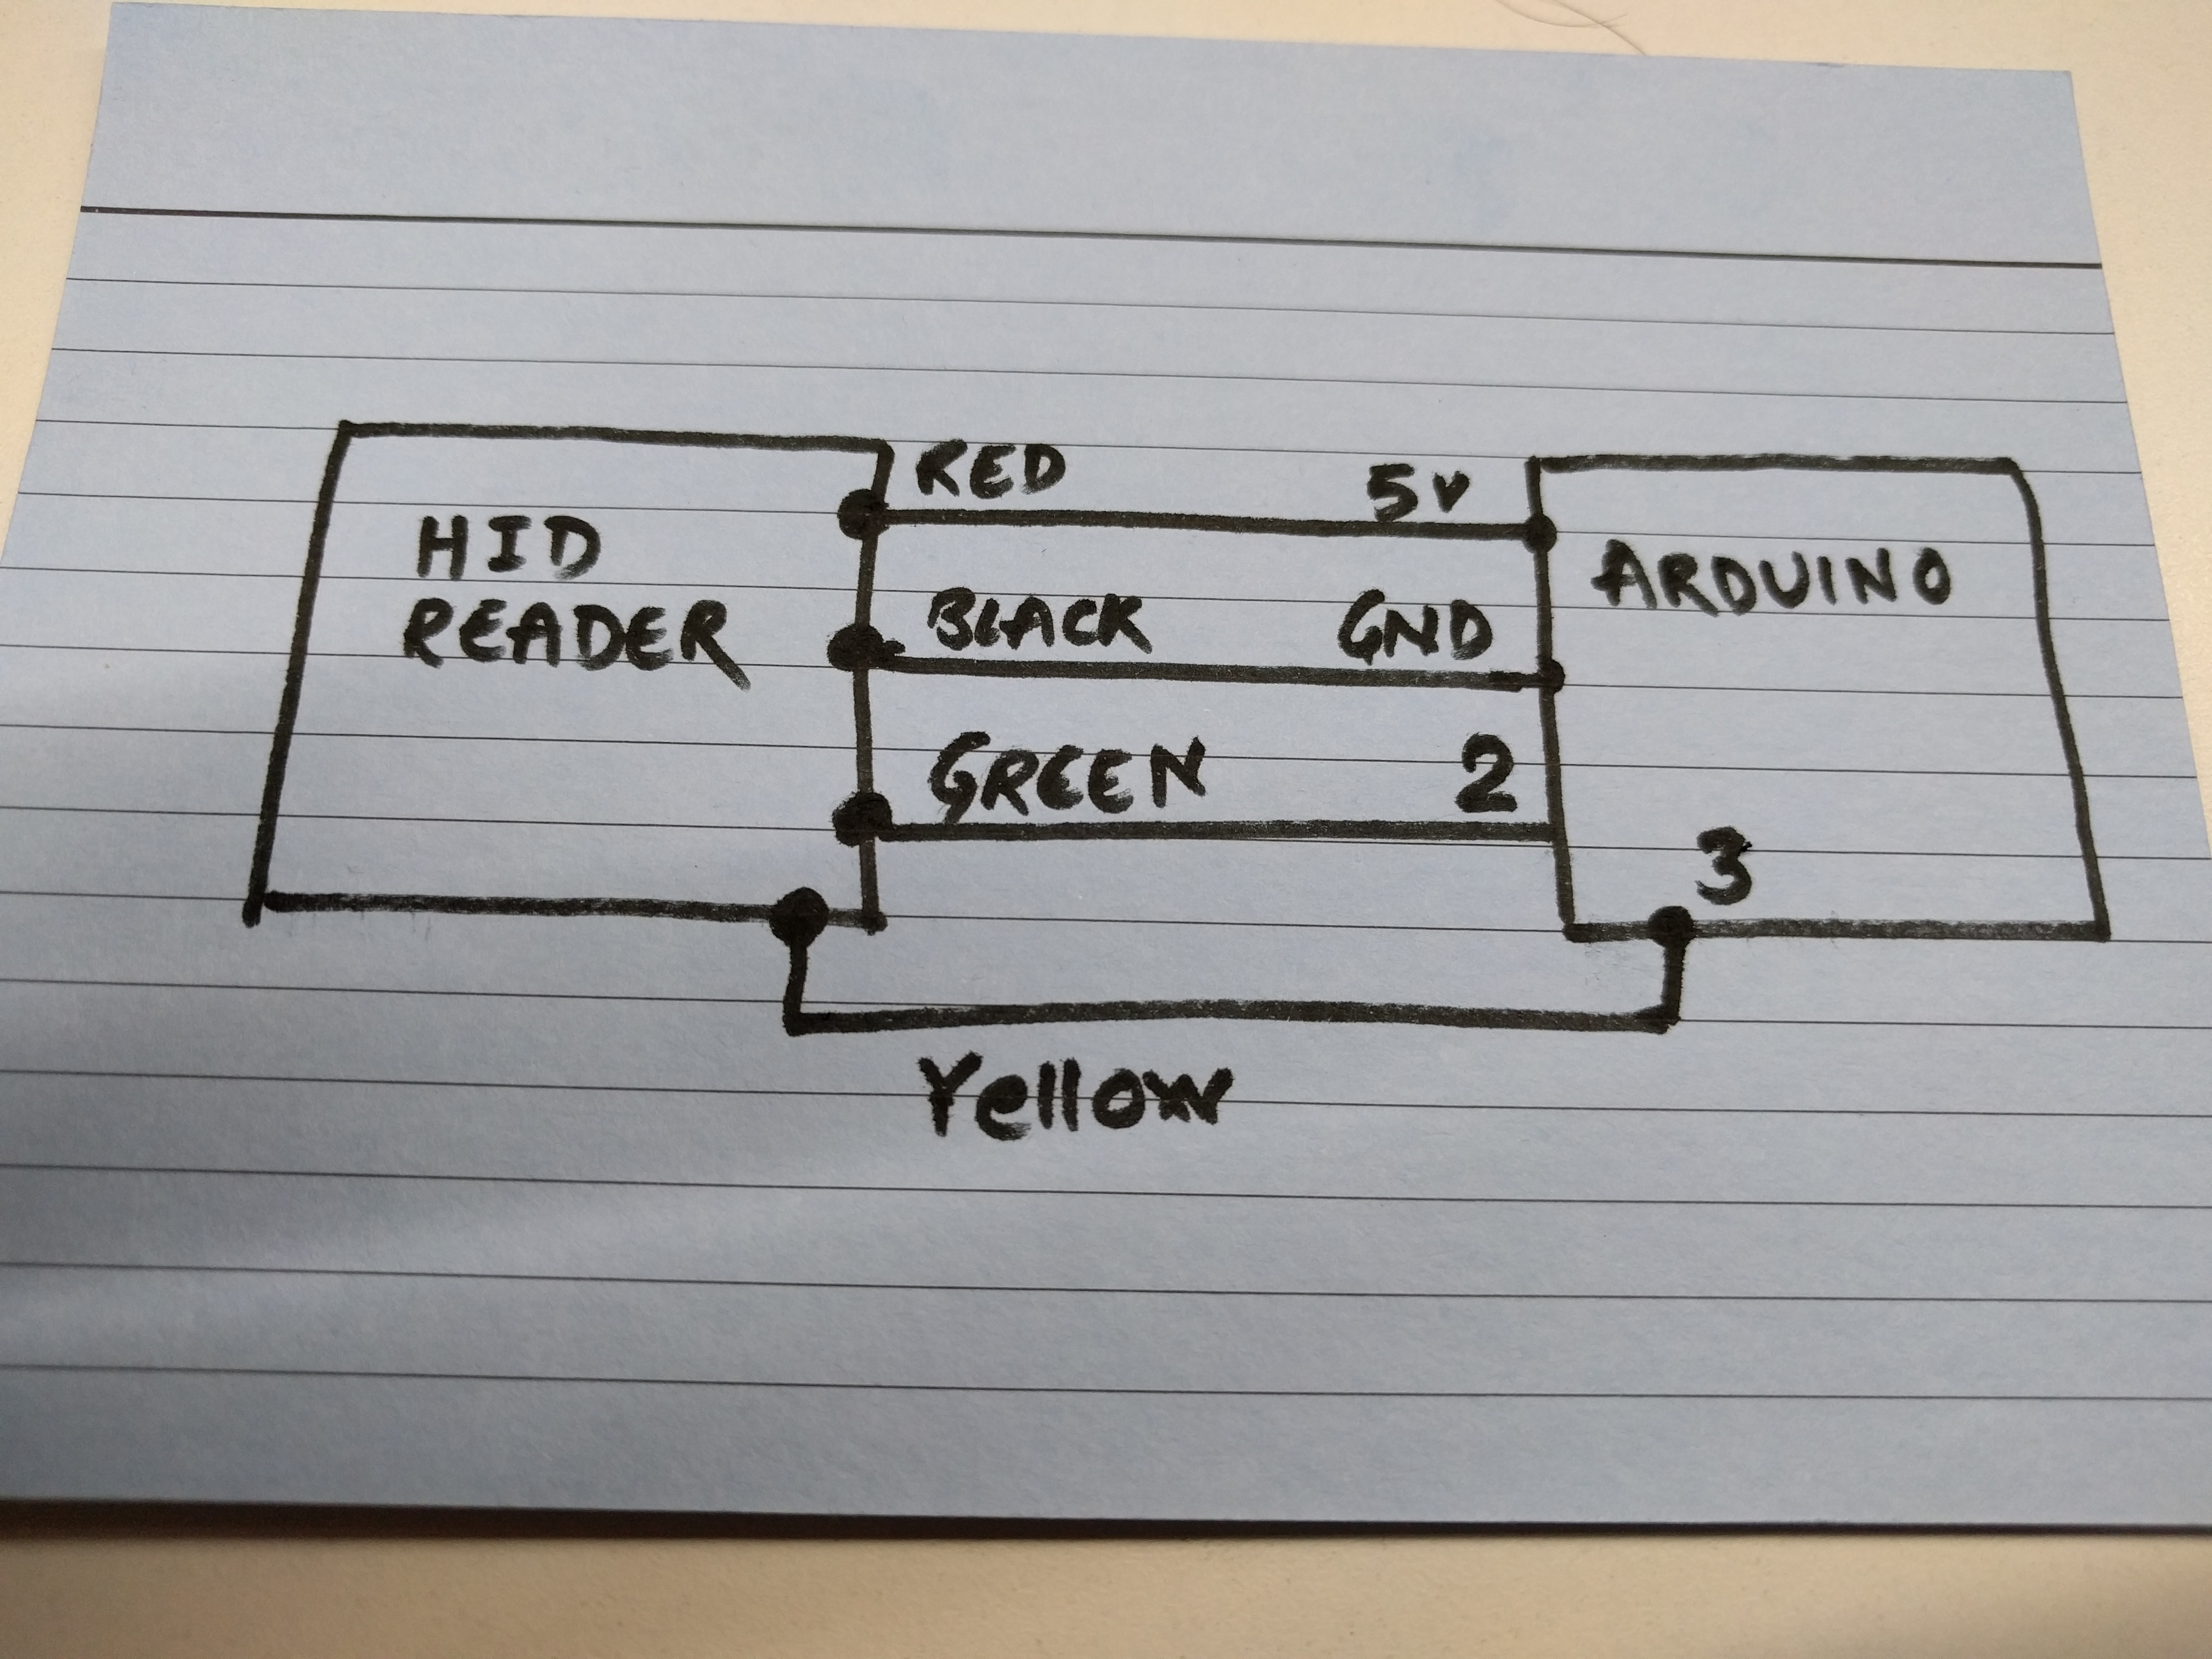 HID
READER
RED
5v
BLACK
GND
GREEN
2
ARDUINO
3
Yellow